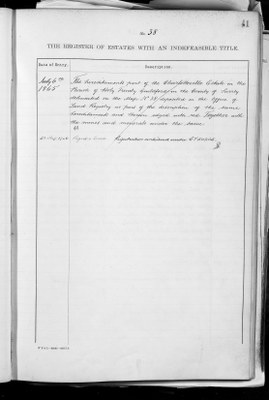 41
No. 38
THE REGISTER OF ESTATES WITH AN INDEFEASIBLE TITLE.
Date of Entry.
Description.
July 6th
1865
The hereditaments part of the Charlotteville Estate in the
Parish of Holy Trinity Guildford in the County of Surrey
delineated on the Map No 38 deposited in the Office of
Land Registry as part of the description of the same
hereditaments and thereon edged with red Together with
the mines and minerals under the same
Registration
under